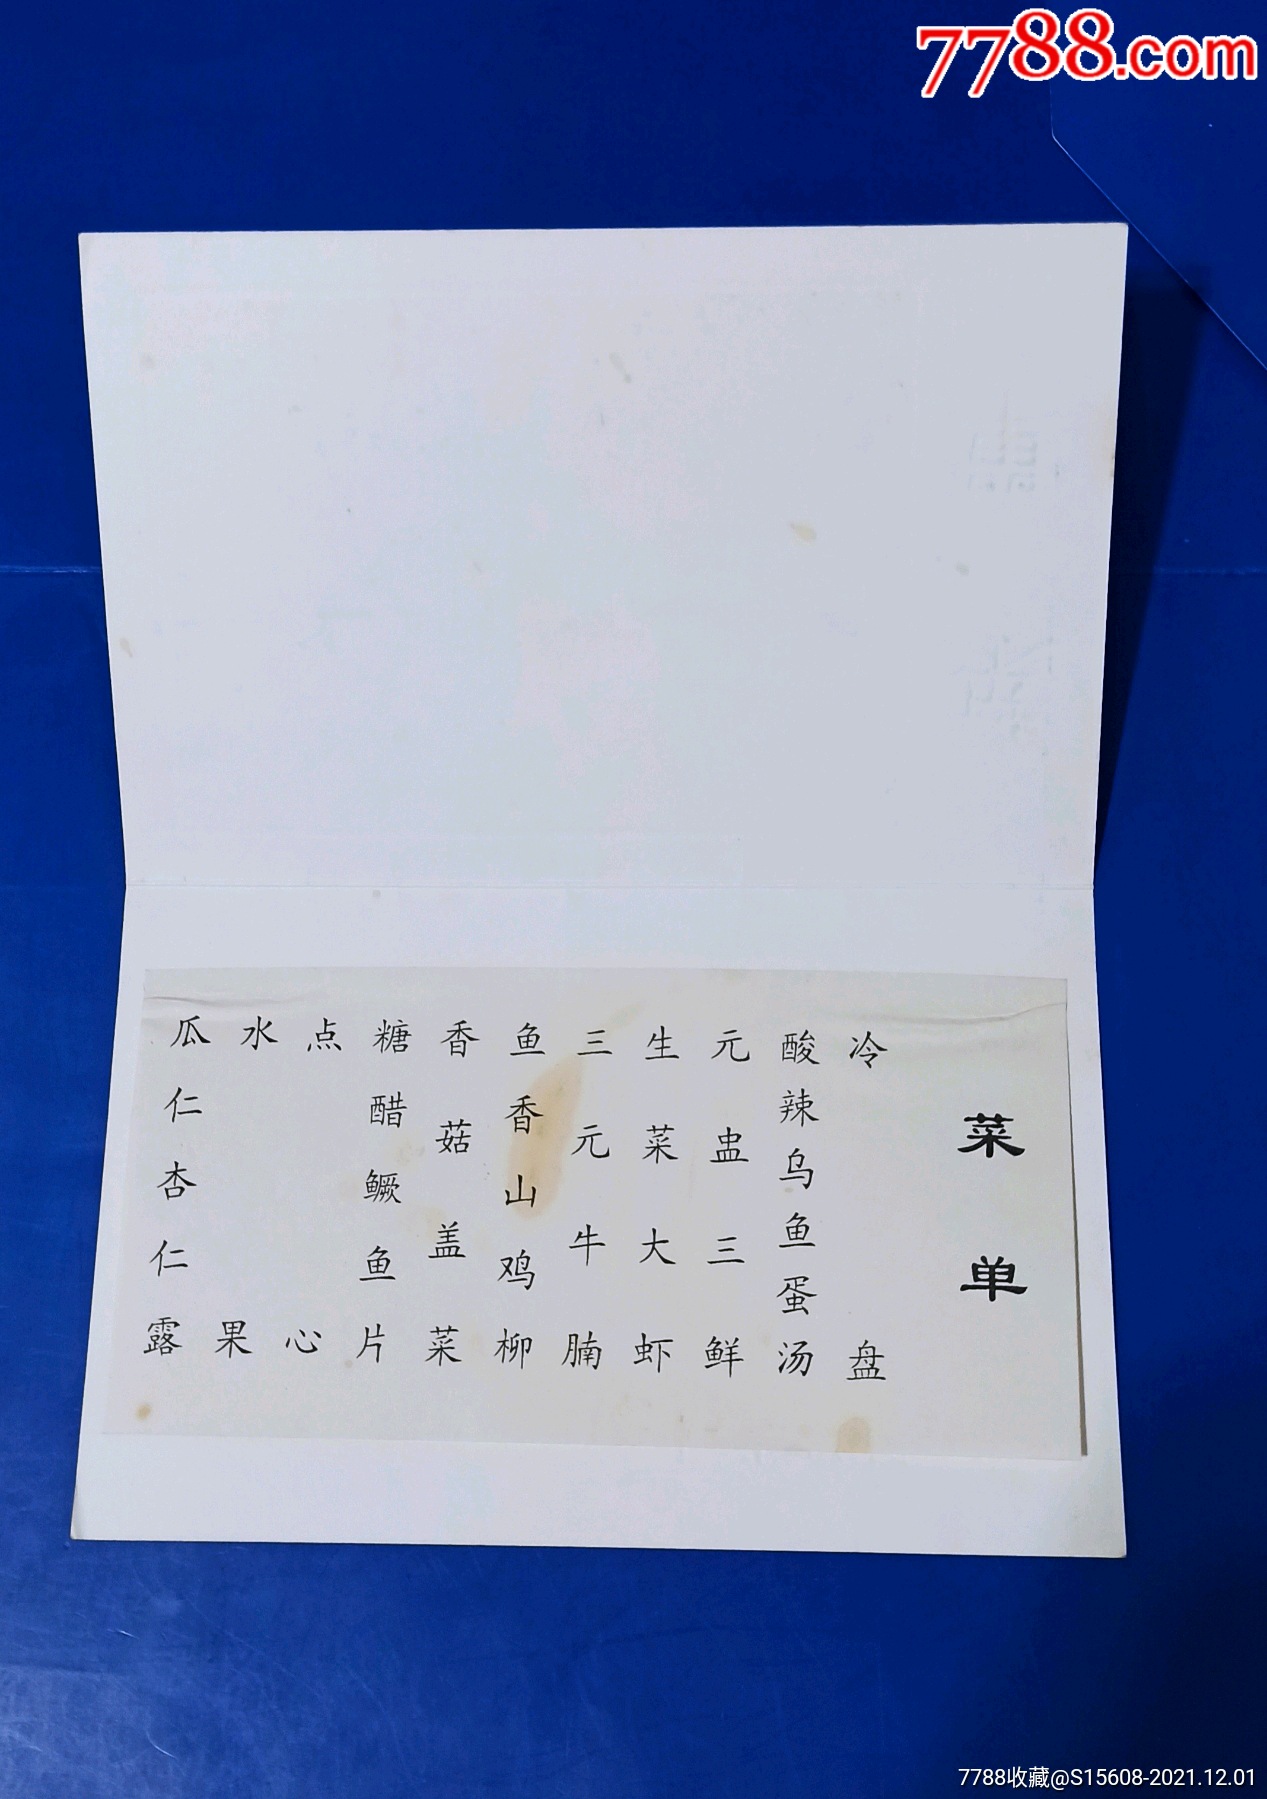 7788.com
菜单
冷盘
酸辣乌鱼蛋汤
元盅三鲜
生菜大虾
三元牛腩
鱼香山鸡柳
香菇盖菜
糖醋鳜鱼片
点心
水果
瓜仁杏仁露
7788收藏@S15608-2021.12.01